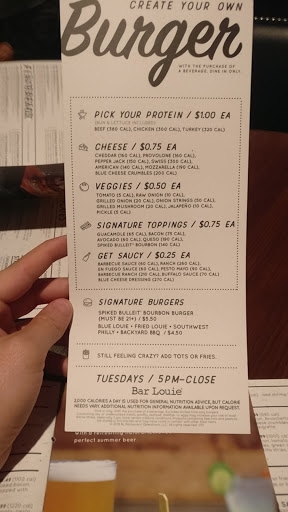 CREATE YOUR OWN
Burger
WITH THE PURCHASE OF
A BEVERAGE. DINE IN ONLY.
PICK YOUR PROTEIN / $1.00 EA
BEEF (380 CAL), CHICKEN (300 CAL), TURKEY (320 CAL)
CHEESE / $0.75 EA
CHEDDAR (160 CAL), PROVOLONE (160 CAL),
PEPPER JACK (150 CAL), SWISS (300 CAL),
AMERICAN (140 CAL), MOZZARELLA (190 CAL),
BLUE CHEESE CRUMBLES (200 CAL)
VEGGIES / $0.50 EA
TOMATO (5 CAL), RAW ONION (10 CAL),
GRILLED ONION (20 CAL), ONION STRINGS (50 CAL),
GRILLED MUSHROOM (20 CAL), JALAPENO (10 CAL),
PICKLE (5 CAL)
SIGNATURE TOPPINGS / $0.75 EA
GUACAMOLE (65 CAL), BACON (75 CAL),
AVOCADO (80 CAL), QUESO (190 CAL),
SPIKED BULLEIT BOURBON (140 CAL)
GET SAUCY / $0.25 EA
BARBECUE SAUCE (60 CAL), RANCH (250 CAL),
EN FUEGO SAUCE (60 CAL), PESTO MAYO (90 CAL),
BARBECUE RANCH (210 CAL), BUFFALO SAUCE (70 CAL)
BLUE CHEESE DRESSING (270 CAL)
SIGNATURE BURGERS
SPIKED BULLEIT BOURBON BURGER
(MUST BE 21+) / $5.50
BLUE LOUIE • FRIED LOUIE • SOUTHWEST
PHILLY • BACKYARD BBQ / $4.50
STILL FEELING CRAZY? ADD TOTS OR FRIES.
TUESDAYS / 5PM-CLOSE
Bar Louie
2,000 CALORIES A DAY IS USED FOR GENERAL NUTRITION ADVICE, BUT CALORIE
NEEDS VARY. ADDITIONAL NUTRITION INFORMATION AVAILABLE UPON REQUEST.
with a refreshing
perfect summer beer